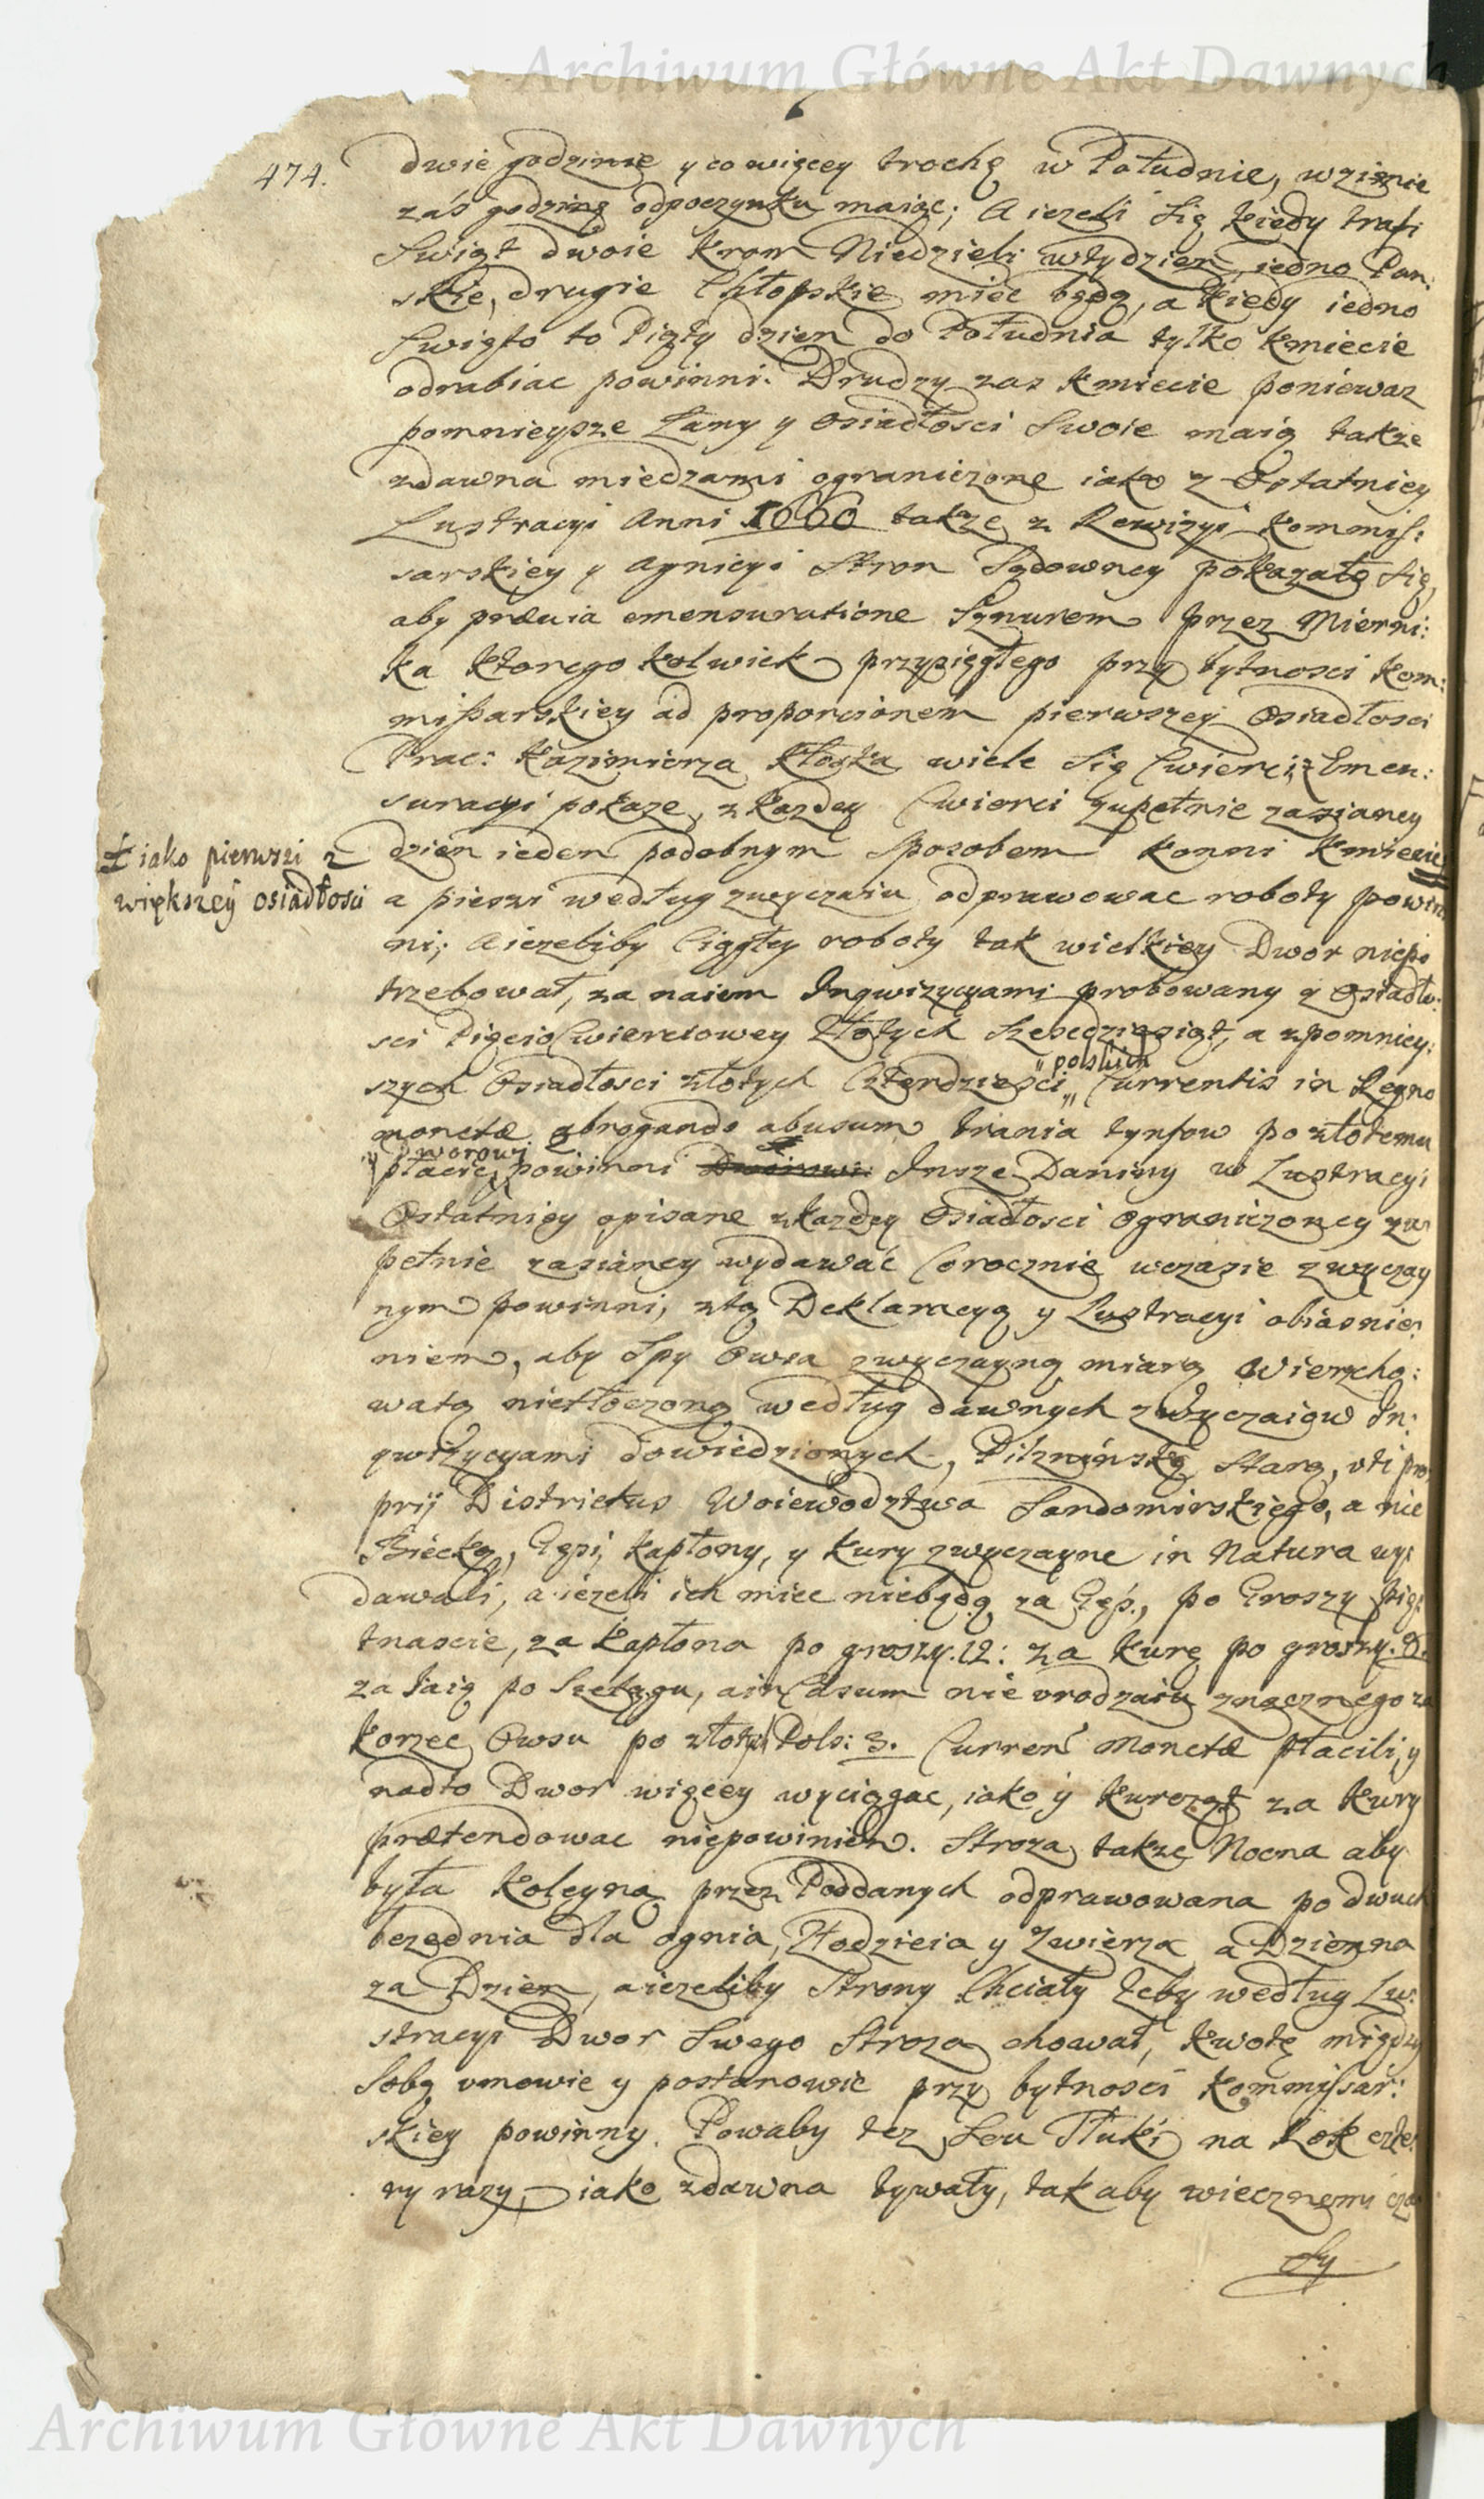 Archiwum Główne Akt Dawnych
474.
dwie godzinie y co więcey trochę w Południe, w zimie
zaś godzinę odpoczynku maiąc; A iezeli Się kiedy trafi
Swiąt dwoie krom Niedzieli w tydzien, iedno Pan:
skie, drugie Chłopskie miec będą, a kiedy iedno
Swięto to Piąty dzien do Południa tylko kmiecie
odrabiac powinni. Drudzy zas kmiecie poniewaz
pomnieysze Łany y Osiadłosci Swoie maią takze
zdawna miedzami ograniczone iako z Ostatniey
Lustracyi Anni 1660 takze z Rewizyi Kommis:
sarskiey y agnicyi Stron Sądowney pokazało Się,
aby prævia emensuratione Sznurem przez Mierni:
ka ktorego kolwiek przysięgłego przy bytnosci Kom:
missarskiey ad proporcionem pierwszey Osiadłosci
Prac: Kazimierza Kłoska wiele Się Cwierci z Emen:
suracyi pokaze, z kazdey Cwierci zupełnie zasianey
‡ iako pierwszi z
większey osiadłosci
dzien ieden podobnym Sposobem konni Kmiecie
a pieszi według zwyczaiu odprawowac roboty powin
ni; A iezeliby Ciągłey roboty tak wielkiey Dwor niepo
trzebował, za naiem Inqwizycyami probowany z Osiadło:
sci Pięcio Cwierciowey Złotych Szescdziesiąt, a z pomniey:
" polskich
szych Osiadłosci złotych Czterdziesci Currentis in Regno
monetæ abrogando abusum brania tynfow po złotemu
Dworowi
płacic powinni Insze Daniny w Lustracyi
Ostatniey opisane z kazdey Osiadłosci Ograniczoney zu
pełnie zasianey wydawać Corocznie w czasie zwyczay
nym powinni, z tą Deklaracyą y Lustracyi obiasnie:
niem, aby Spy Owsa zwyczayną miarą Wierzcho:
watą nietłoczoną według dawnych zwyczaiow In:
qwizycyami dowiedzionych, Pilznińską Starą, uti pro
prij Districtus Woiewodztwa Sandomirskiego, a nie
Biecką, Gęsi, kapłony, y kury zwyczayne in Natura wy:
dawali, a iezeli ich miec niebędą za Gęś, po Groszy pię:
tnascie, za kapłona po groszy. 12: za kurę po groszy. 8.
za Iaię po Szelągu, a in Casum nie urodzaiu znacznego za
korzec Owsu po złoty Pols: 3. Curren Monetæ płacili, y
nadto Dwor więcey wyciągac, iako y kurcząt za kury
prætendowac niepowinien. Stroza takze Nocna aby
była koleyną przez Poddanych odprawowana po dwuch
bezednia dla ognia, Złodzieia y Zwierza a Dzienna
za Dzien, a iezeliby Strony Chciały zeby według Lu:
stracyi Dwor Swego Stroza chował, kwotę między
Sobą umowic y postanowic przy bytnosci Kommissar:
skiey powinny. Powaby tez Seu Tłuki na Rok czte:
ry razy, iako zdawna bywały, tak aby wiecznemi cza
Sy
Archiwum Główne Akt Dawnych